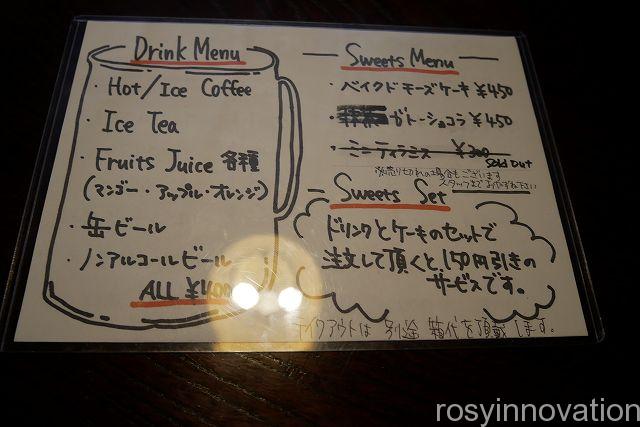 Drink Menu
・Hot/Ice Coffee
・Ice Tea
・Fruits Juice 各種
(マンゴー・アップル・オレンジ)
・缶ビール
・ノンアルコールビール
ALL ¥400
Sweets Menu
・ベイクドチーズケーキ ¥450
・ガトーショコラ ¥450
・ミニティラミス ¥300
SOLD OUT
※売り切れの場合もございます
スタッフまでお尋ね下さい
Sweets Set
ドリンクとケーキのセットで
注文して頂くと150円引きの
サービスです。
テイクアウトは別途箱代を頂戴します。
rosyinnovation